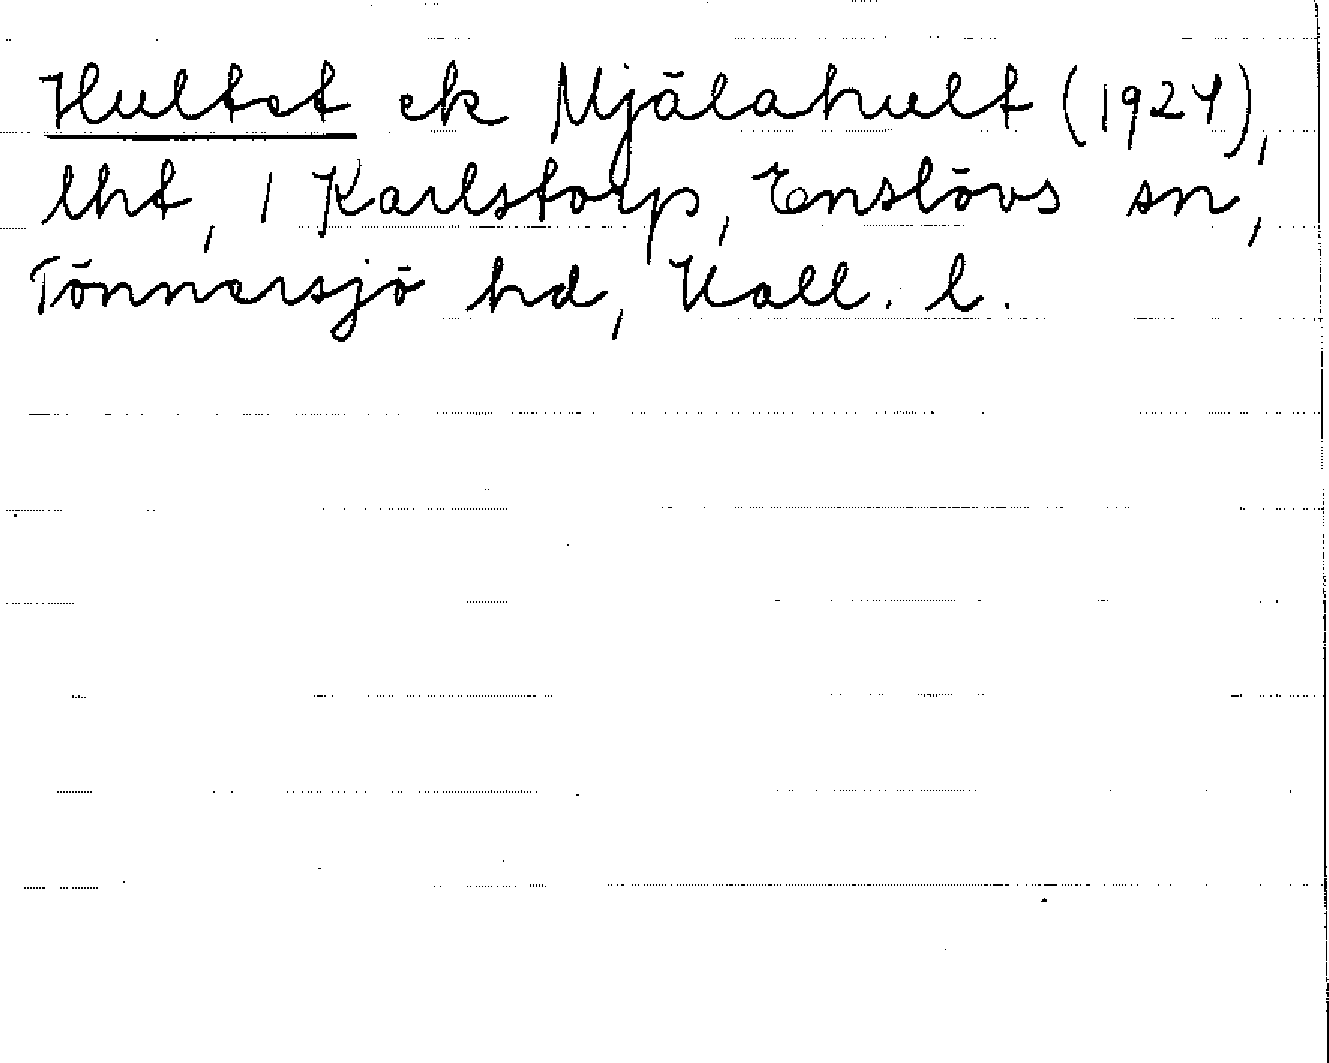 Hultet ek Mjälahult (1924),
lht, 1 Karlstorp, Enslövs sn,
Tönnersjö hd, Hall. l.